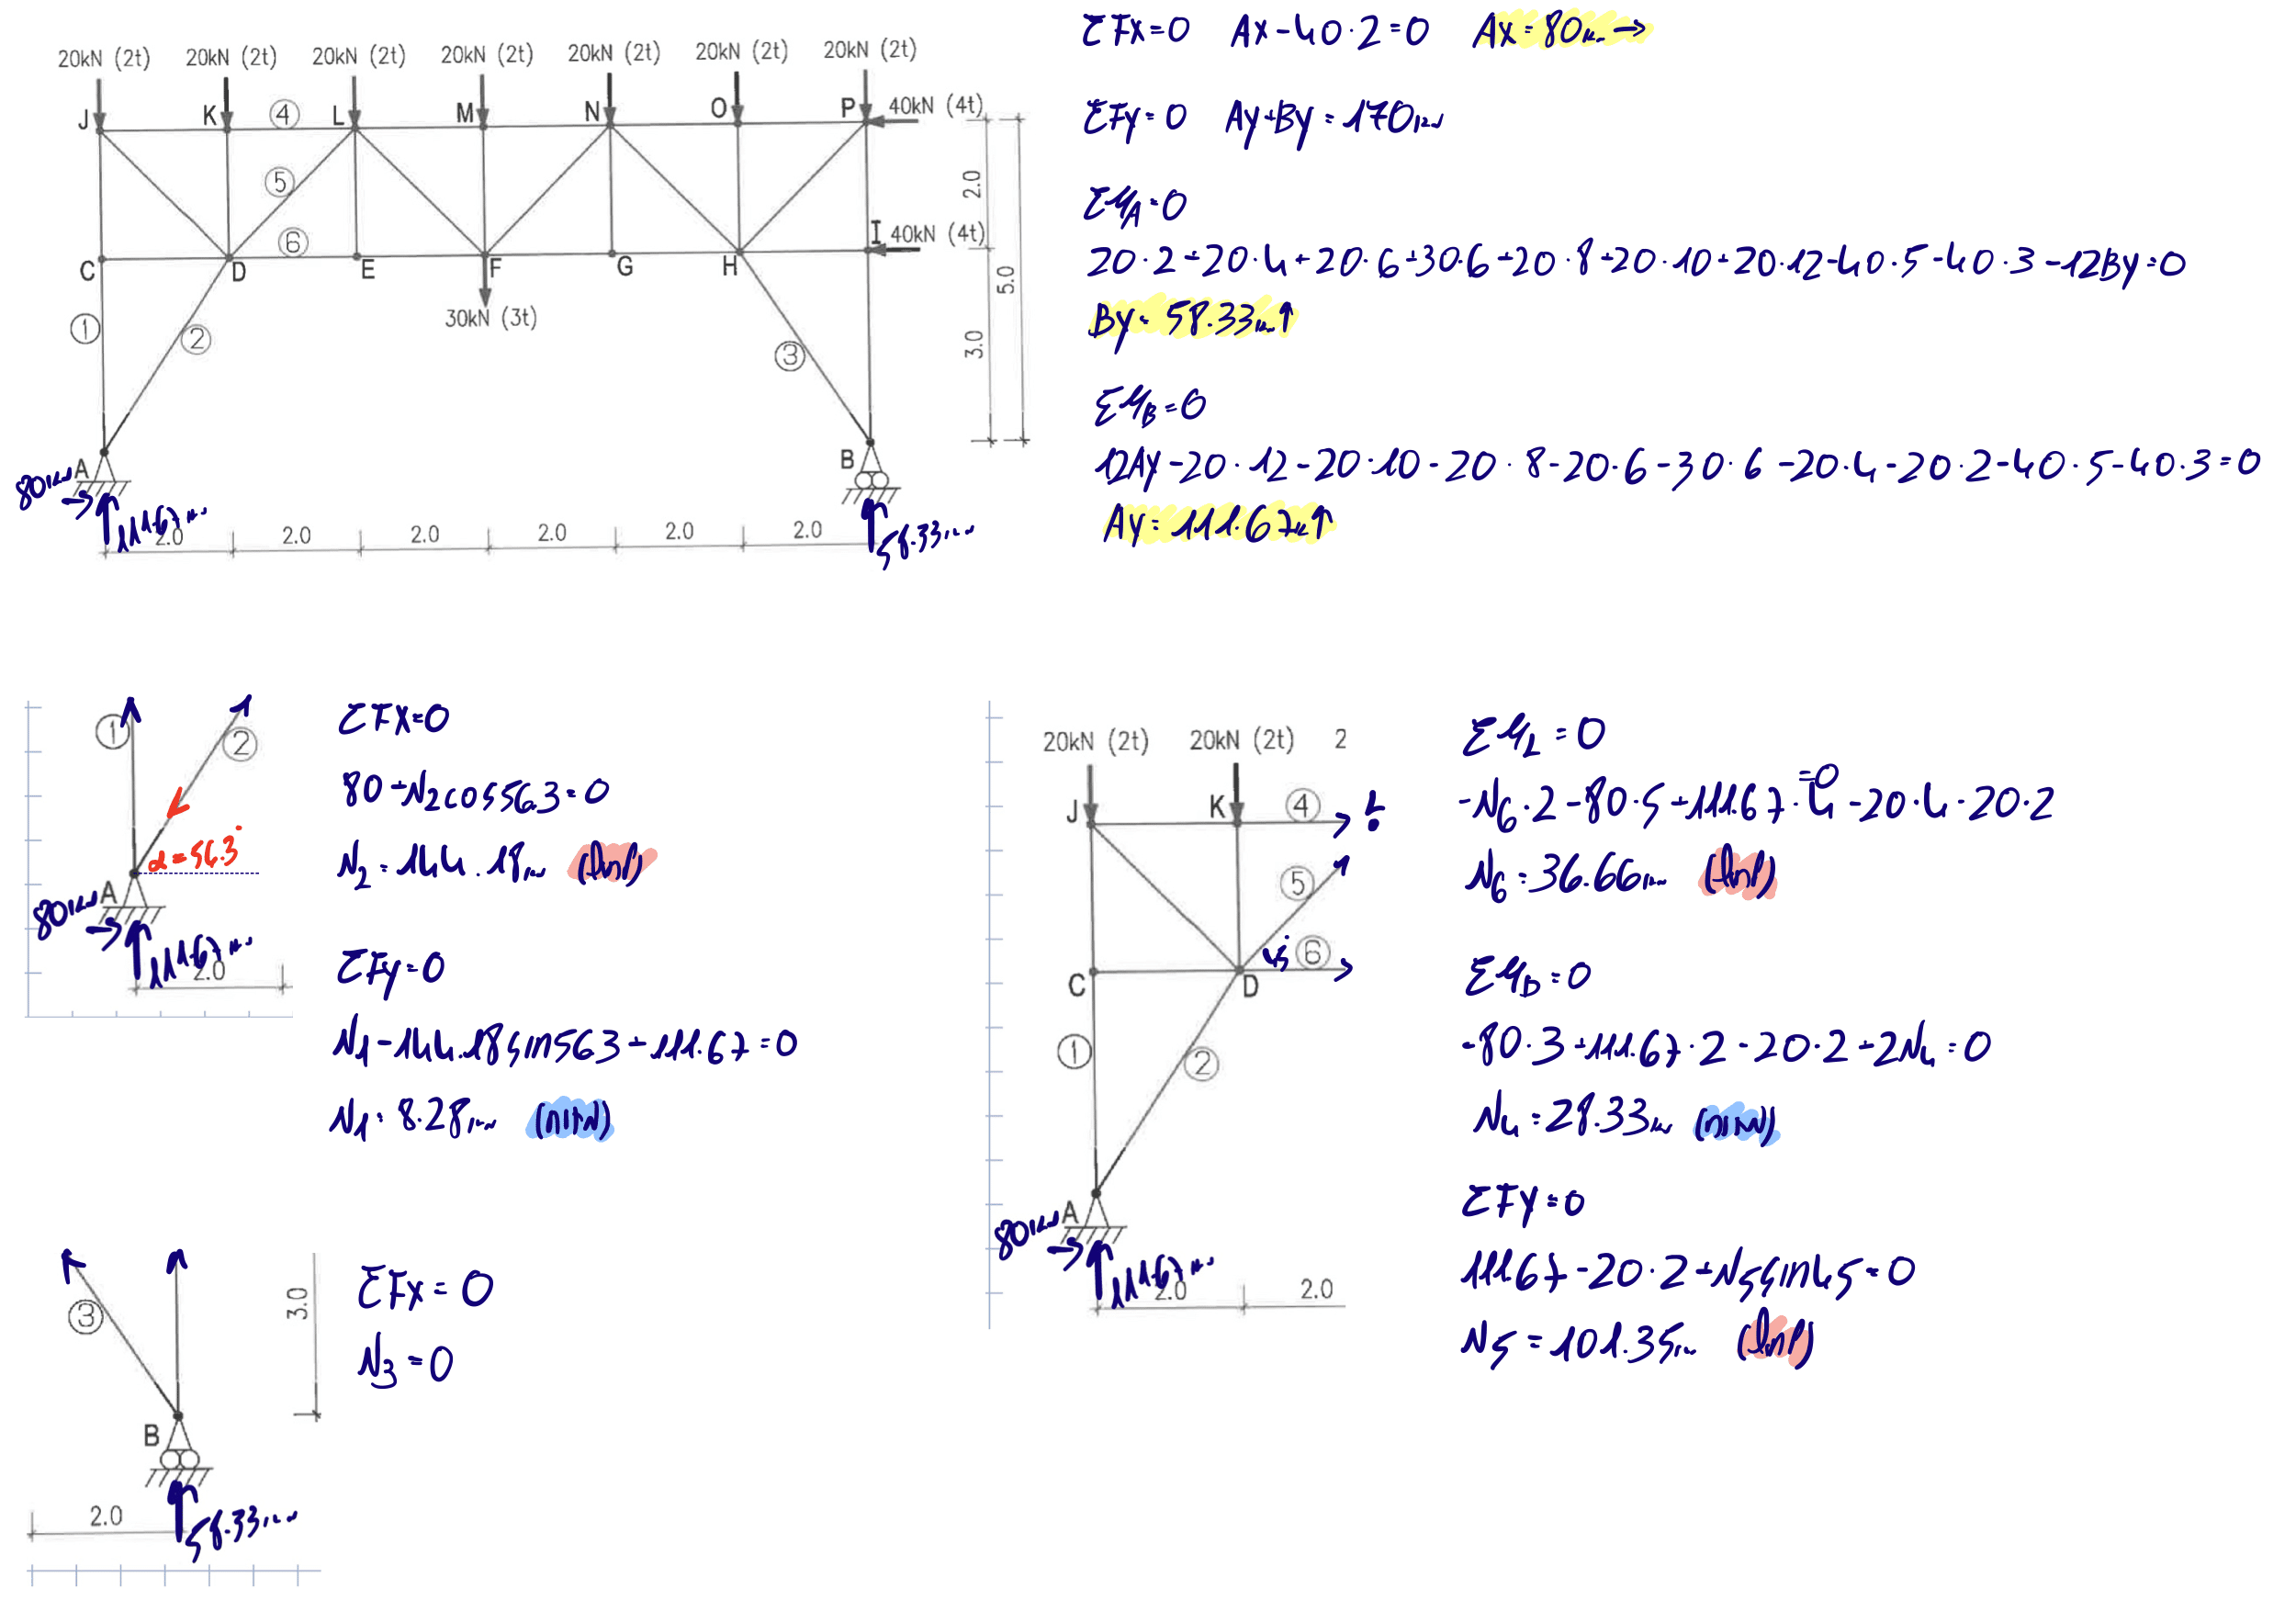 20kN (2t) 20kN (2t) 20kN (2t) 20kN (2t) 20kN (2t) 20kN (2t) 20kN (2t)
J K ④ L M N O P 40kN (4t)
⑤ 2.0
⑥ I 40kN (4t)
C D E F G H
5.0
30kN (3t)
① ② ③ 3.0
A B
80kN
111.67kN 58.33kN
2.0 2.0 2.0 2.0 2.0 2.0
ΣFx=0 Ax-40·2=0 Ax=80kN→
ΣFy=0 Ay+By=170kN
ΣMA=0
20·2+20·4+20·6+30·6+20·8+20·10+20·12-40·5-40·3-12By=0
By=58.33kN↑
ΣMB=0
12Ay-20·12-20·10-20·8-20·6-30·6-20·4-20·2-40·5-40·3=0
Ay=111.67kN↑
① ②
α=56.3°
80kN A
111.67kN
2.0
ΣFx=0
80+N2cos56.3=0
N2=144.18kN (לחץ)
ΣFy=0
N1-144.18sin56.3+111.67=0
N1=8.28kN (מתיחה)
③ 3.0
B
2.0 58.33kN
ΣFx=0
N3=0
20kN (2t) 20kN (2t) 2
J K ④ L
⑤
45° ⑥
C D
① ②
80kN A
111.67kN
2.0 2.0
ΣML=0
-N6·2-80·5+111.67·4-20·4-20·2=0
N6=36.66kN (לחץ)
ΣMD=0
-80·3+111.67·2-20·2+2N4=0
N4=28.33kN (מתיחה)
ΣFy=0
111.67-20·2+N5sin45=0
N5=101.35kN (לחץ)